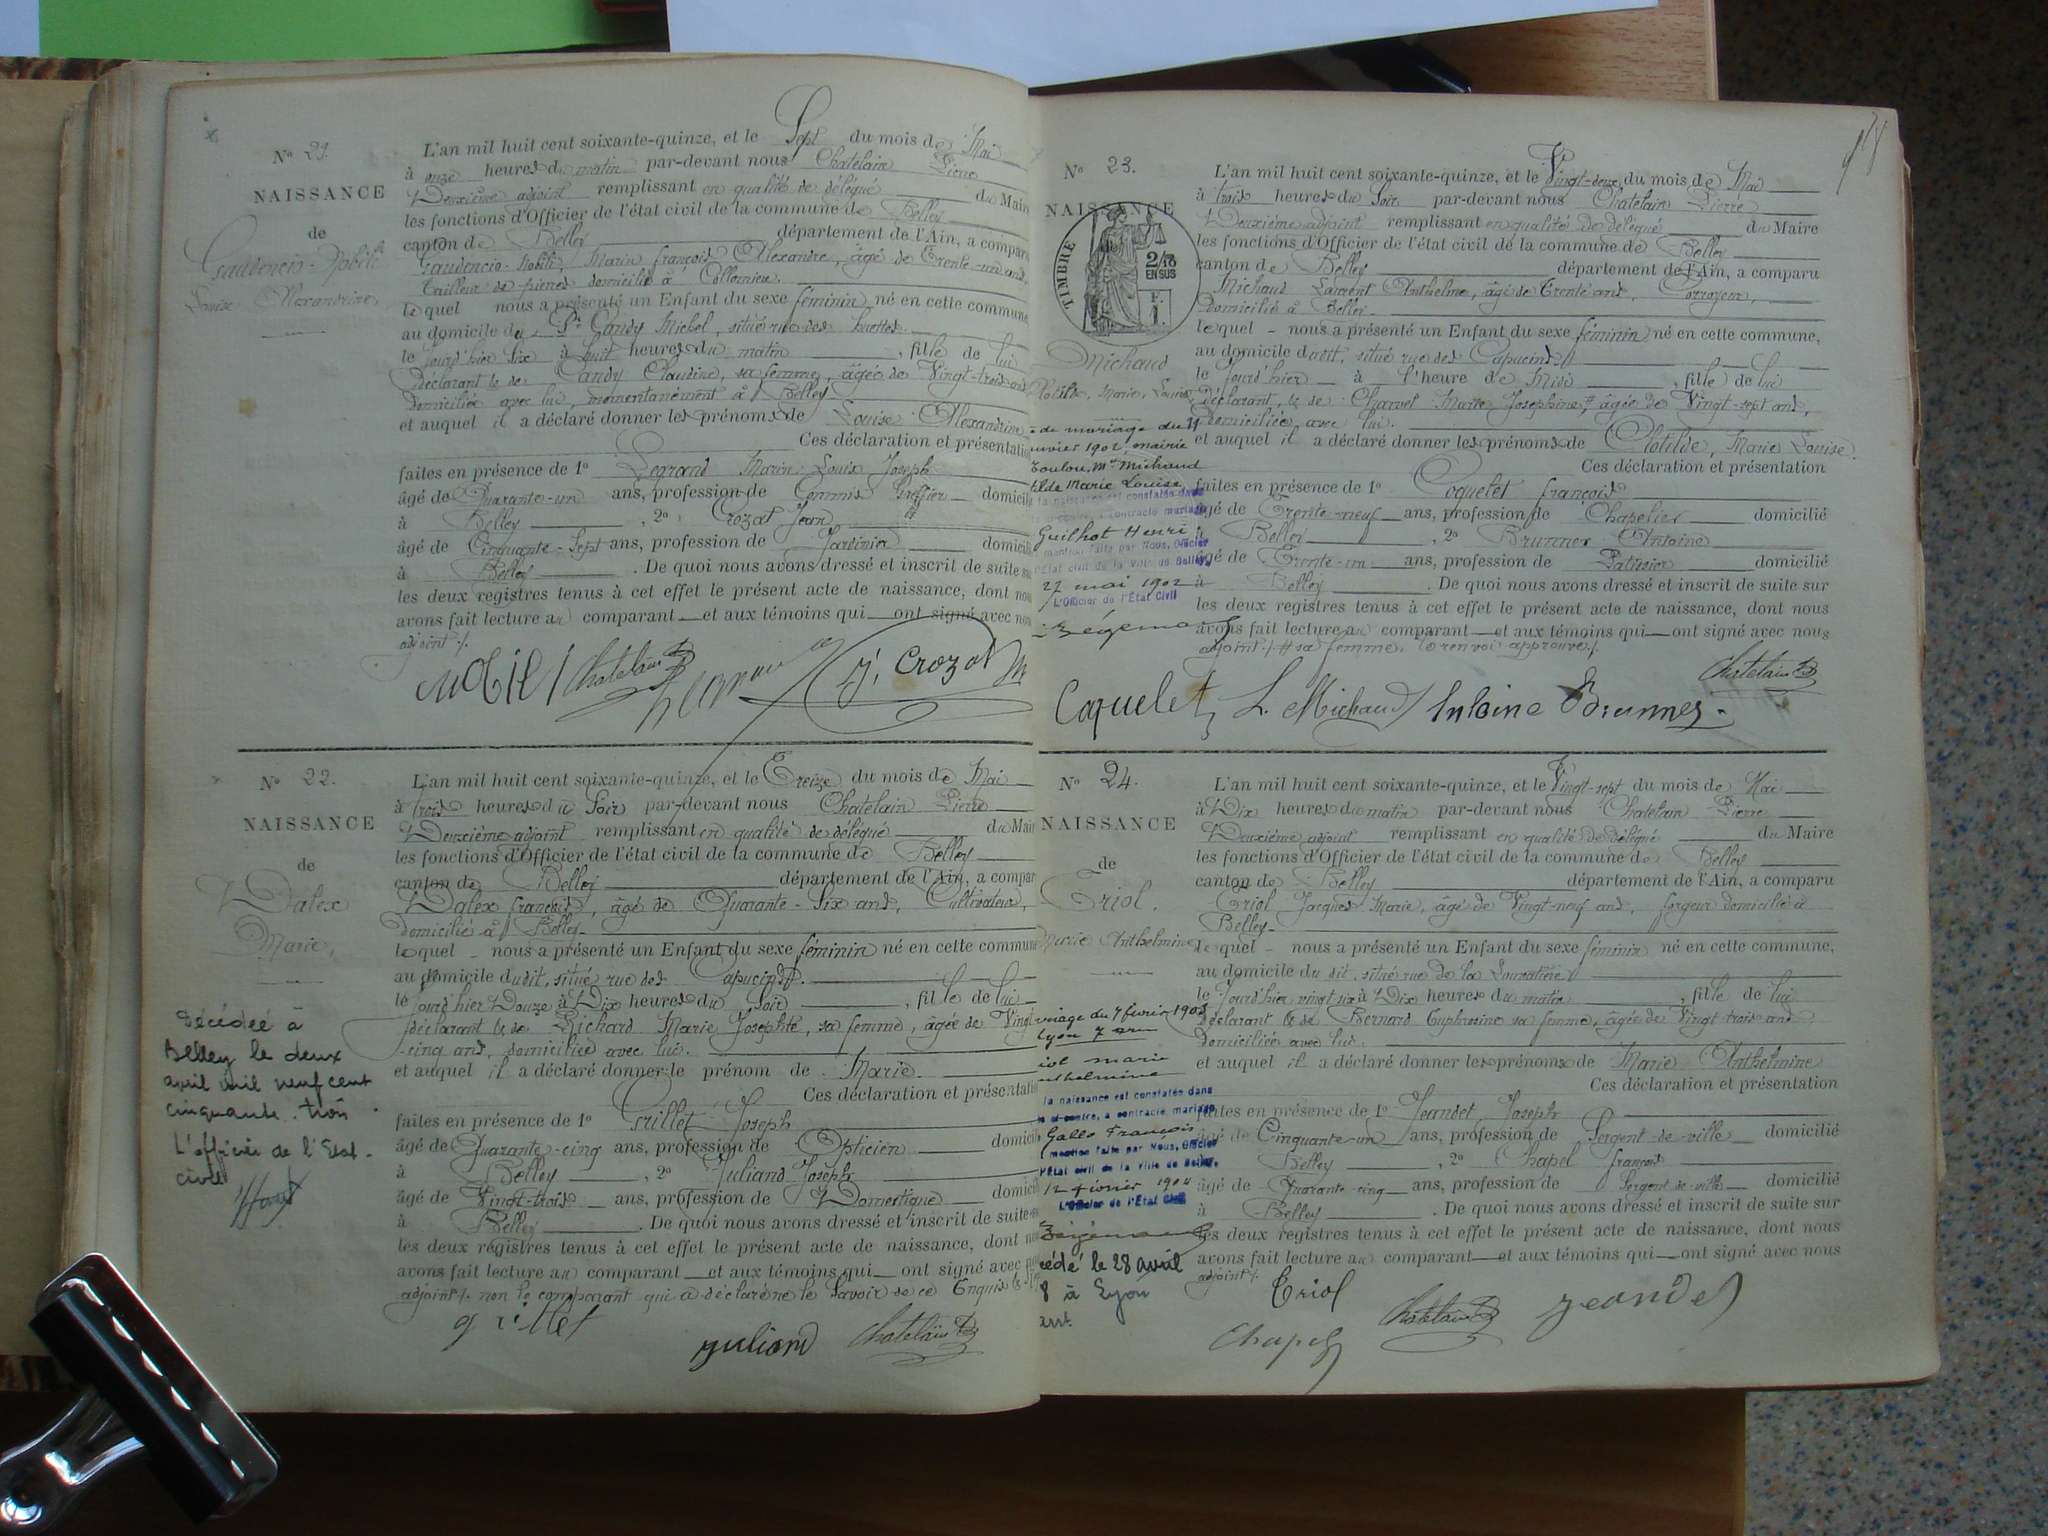 Nº 21.
NAISSANCE
de
Gaudencio-Nobili
Louise Alexandrine,
L'an mil huit cent soixante-quinze, et le Sept du mois de Mai
à onze heures du matin par-devant nous Chatelain Pierre
Deuxième adjoint remplissant en qualité de délégué du Maire
les fonctions d'Officier de l'état civil de la commune de Belley
canton de Belley département de l'Ain, a comparu
Gaudencio-Nobili, Marin françois Alexandre, âgé de Trente-un ans,
tailleur de pierres domicilié à Collomieu
lequel nous a présenté un Enfant du sexe féminin né en cette commune,
au domicile du Sr Candy Michel, situé rue des huttes.
le jourd'hier Six à huit heures du matin, fille de lui
déclarant & de Candy Claudine, sa femme, âgée de Vingt-trois ans
domiciliée avec lui, momentanément à Belley
et auquel il a déclaré donner les prénoms de Louise Alexandrine
Ces déclaration et présentation
faites en présence de 1º Legrand Marin Louis Joseph
âgé de Quarante-un ans, profession de Commis Greffier domicilié
à Belley, 2º Crozat Jean
âgé de Cinquante-Sept ans, profession de Jardinier domicilié
à Belley. De quoi nous avons dressé et inscrit de suite sur
les deux registres tenus à cet effet le présent acte de naissance, dont nous
avons fait lecture au comparant et aux témoins qui ont signé avec nous
adjoint /.
NOBILI Chatelain J. Crozat
Nº 22.
NAISSANCE
de
Dalex
Marie,
Décédée à
Belley le deux
avril mil neuf cent
cinquante-trois
L'officier de l'Etat-
civil
L'an mil huit cent soixante-quinze, et le Treize du mois de Mai
à trois heures du Soir par-devant nous Chatelain Pierre
Deuxième adjoint remplissant en qualité de délégué du Maire
les fonctions d'Officier de l'état civil de la commune de Belley
canton de Belley département de l'Ain, a comparu
Dalex françois, âgé de Quarante-Six ans, Cultivateur,
domicilié à Belley-
lequel nous a présenté un Enfant du sexe féminin né en cette commune
au domicile dudit, situé rue des Capucins.
le jourd'hier Douze à Dix heures du Soir, fille de lui
déclarant & de Richard Marie Josephte, sa femme, âgée de Vingt
-cinq ans, domiciliée avec lui.
et auquel il a déclaré donner le prénom de Marie.
Ces déclaration et présentation
faites en présence de 1º Grillet Joseph
âgé de Quarante-cinq ans, profession de Opticien domicilié
à Belley, 2º Juliand Joseph
âgé de Vingt-trois ans, profession de Domestique domicilié
à Belley. De quoi nous avons dressé et inscrit de suite
les deux registres tenus à cet effet le présent acte de naissance, dont nous
avons fait lecture au comparant et aux témoins qui ont signé avec nous
adjoint /. non le comparant qui a déclaré ne le Savoir de ce Enquis
grillet juliand Chatelain
Nº 23.
NAISSANCE
TIMBRE
2/10
EN SUS
F.
1.
Michaud
Clotilde, Marie, Louise,
de mariage du 11
janvier 1902, mairie
Toulon, Mlle Michaud
Clotilde Marie Louise
la naissance est constatée dans
ci-contre, a contracté mariage
Guilhot Henri
mention faite par Nous, Officier
l'État civil de la Ville de Belley,
27 mai 1902
L'Officier de l'État Civil
L'an mil huit cent soixante-quinze, et le Vingt-deux du mois de Mai
à trois heures du Soir par-devant nous Chatelain Pierre
Deuxième adjoint remplissant en qualité de délégué du Maire
les fonctions d'Officier de l'état civil de la commune de Belley
canton de Belley département de l'Ain, a comparu
Michaud Laurent Anthelme, âgé de Trente ans, Corroyeur,
Domicilié à Belley.
lequel nous a présenté un Enfant du sexe féminin né en cette commune,
au domicile dudit, situé rue des Capucins
le jourd'hier à l'heure de Midi, fille de lui
Déclarant, & de Charvet Marie Josephine, # âgée de Vingt-sept ans,
domiciliée avec lui.
et auquel il a déclaré donner les prénoms de Clotilde, Marie Louise.
Ces déclaration et présentation
faites en présence de 1º Coquelet françois
âgé de Trente-neuf ans, profession de Chapelier domicilié
à Belley, 2º Brunner Antoine
âgé de Trente-un ans, profession de Patissier domicilié
à Belley. De quoi nous avons dressé et inscrit de suite sur
les deux registres tenus à cet effet le présent acte de naissance, dont nous
avons fait lecture au comparant et aux témoins qui ont signé avec nous
adjoint /. # sa femme, le renvoi approuvé /.
Chatelain
Caquelet L. Michaud Antoine Brunner
Nº 24.
NAISSANCE
de
Triol.
Marie Anthelmine
mariage du 7 février 1903
Lyon 7
Triol marie
anthelmine
la naissance est constatée dans
ci-contre, a contracté mariage
Gallo François
mention faite par Nous, Officier
l'État civil de la Ville de Belley,
12 février 1904
L'Officier de l'État Civil
décédé le 28 avril
8 à Lyon
L'an mil huit cent soixante-quinze, et le Vingt-sept du mois de Mai
à Dix heures du matin par-devant nous Chatelain Pierre
Deuxième adjoint remplissant en qualité de délégué du Maire
les fonctions d'Officier de l'état civil de la commune de Belley
canton de Belley département de l'Ain, a comparu
Triol Jacques Marie, âgé de Vingt-neuf ans, forgeur domicilié à
Belley-
lequel nous a présenté un Enfant du sexe féminin né en cette commune,
au domicile du dit, situé rue de la
le jourd'hier vingt six à Dix heures du matin, fille de lui
Déclarant & de Bernard Euphrosine sa femme, âgée de Vingt trois ans
domiciliée avec lui.
et auquel il a déclaré donner les prénoms de Marie Anthelmine
Ces déclaration et présentation
faites en présence de 1º Jeandet Joseph
âgé de Cinquante-un ans, profession de Sergent-de-ville domicilié
Belley, 2º Chapel françois
âgé de Quarante-cinq ans, profession de Sergent-de-ville domicilié
à Belley. De quoi nous avons dressé et inscrit de suite sur
les deux registres tenus à cet effet le présent acte de naissance, dont nous
avons fait lecture au comparant et aux témoins qui ont signé avec nous
adjoint /.
Triol Chatelain Jeandet
Chapel